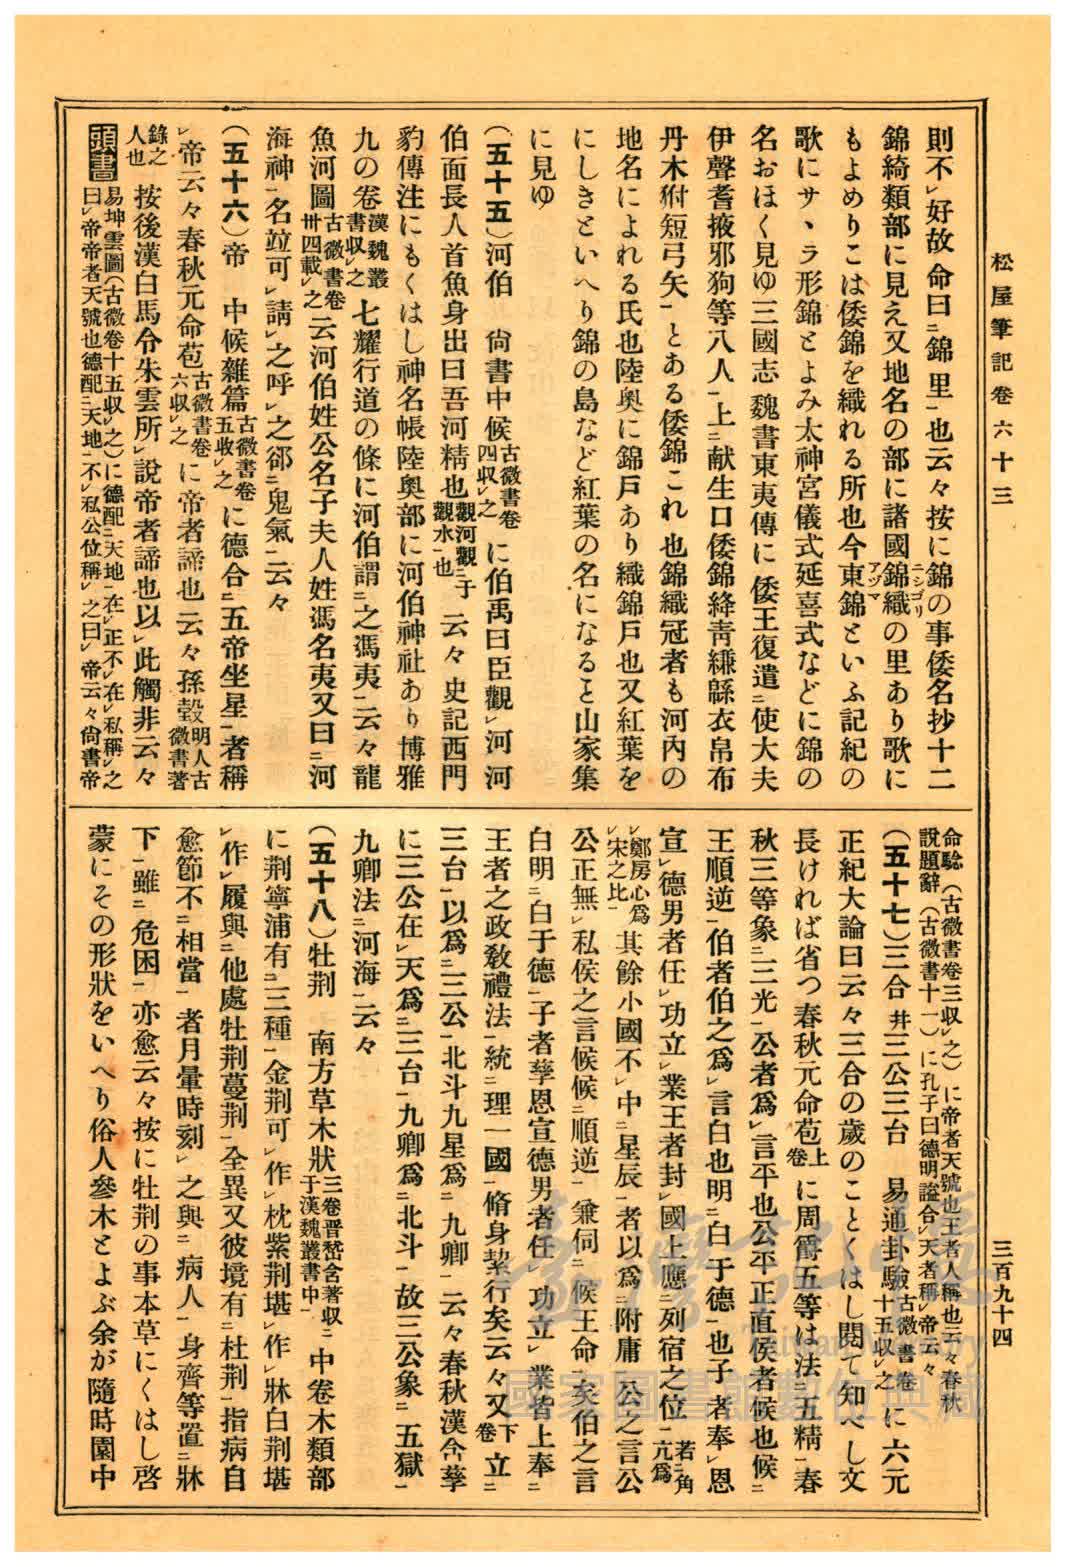 松屋筆記卷六十三
三百九十四
則不㆑好故命曰㆓錦里㆒也云々按に錦の事倭名抄十二
錦綺類部に見え又地名の部に諸國錦織の里あり歌に
ニシゴリ
もよめりこは倭錦を織れる所也今東錦といふ記紀の
アヅマ
歌にサヽラ形錦とよみ太神宮儀式延喜式などに錦の
名おほく見ゆ三國志魏書東夷傳に倭王復遣㆓使大夫
伊聲耆掖邪狗等八人㆒上㆓献生口倭錦絳青縑緜衣帛布
丹木㹨短弓矢㆒とある倭錦これ也錦織冠者も河内の
地名によれる氏也陸奥に錦戸あり織錦戸也又紅葉を
にしきといへり錦の島など紅葉の名になると山家集
に見ゆ
（五十五）河伯　尙書中候古微書卷四収㆑之に伯禹曰臣觀㆑河河
伯面長人首魚身出曰吾河精也觀河觀㆓于觀水㆒也云々史記西門
豹傳注にもくはし神名帳陸奥部に河伯神社あり博雅
九の卷漢魏叢書収㆑之七耀行道の條に河伯謂㆓之馮夷㆒云々龍
魚河圖古微書卷卅四載㆑之云河伯姓公名子夫人姓馮名夷又曰㆓河
海神㆒名竝可㆑請㆑之呼㆑之郤㆓鬼氣㆒云々
（五十六）帝　中候雜篇古微書卷五收㆑之に德合㆓五帝坐星㆒者稱
㆑帝云々春秋元命苞古微書卷六収㆑之に帝者諦也云々孫瑴明人古微書著
錄之人也按後漢白馬令朱雲所㆑說帝者諦也以㆑此觸非云々
頭書　易坤雲圖（古微卷十五収㆑之）に德配㆓天地㆒在㆑正不㆑在㆑私稱㆑之
曰㆑帝帝者天號也德配㆓天地㆒不㆑私公位稱㆑之曰㆑帝云々尙書帝
命騐（古微書卷三収㆑之）に帝者天號也王者人稱也云々春秋
說題辭（古微書十一）に孔子曰德明謚合㆑天者稱㆑帝云々
（五十七）三合幷三公三台　易通卦驗古微書卷十五収㆑之に六元
正紀大論曰云々三合の歲のことくはし閲て知べし文
長ければ省つ春秋元命苞上卷に周爵五等は法㆓五精㆒春
秋三等象㆓三光㆒公者爲㆑言平也公平正直侯者候也候㆓
王順逆㆒伯者伯之爲㆑言白也明㆓白于德㆒也子者奉㆑恩
宣㆑德男者任㆑功立㆑業王者封㆑國上應㆓列宿之位㆒若㆓角亢爲
㆑鄭房心爲㆑宋之比㆒其餘小國不㆑中㆓星辰㆒者以爲㆓附庸㆒公之言公
公正無㆑私侯之言候候㆓順逆㆒兼伺㆓候王命㆒矣伯之言
白明㆓白于德㆒子者孳恩宣德男者任㆑功立㆑業皆上奉㆓
王者之政敎禮法㆒統㆓理一國㆒脩身絜行矣云々又下卷立㆓
三台㆒以爲㆓三公㆒北斗九星爲㆓九卿㆒云々春秋漢含孳
に三公在㆑天爲㆓三台㆒九卿爲㆓北斗㆒故三公象㆓五獄㆒
九卿法㆓河海㆒云々
（五十八）牡荆　南方草木狀三卷晋嵆含著収㆓于漢魏叢書中㆒中卷木類部
に荆寧浦有㆓三種㆒金荆可㆑作㆑枕紫荆堪㆑作㆑牀白荆堪
㆑作㆑履與㆓他處牡荆蔓荆㆒全異又彼境有㆓杜荆㆒指病自
愈節不㆓相當㆒者月暈時刻㆑之與㆓病人㆒身齊等置㆓牀
下㆒雖㆓危困㆒亦愈云々按に牡荆の事本草にくはし啓
蒙にその形狀をいへり俗人參木とよぶ余が隨時園中